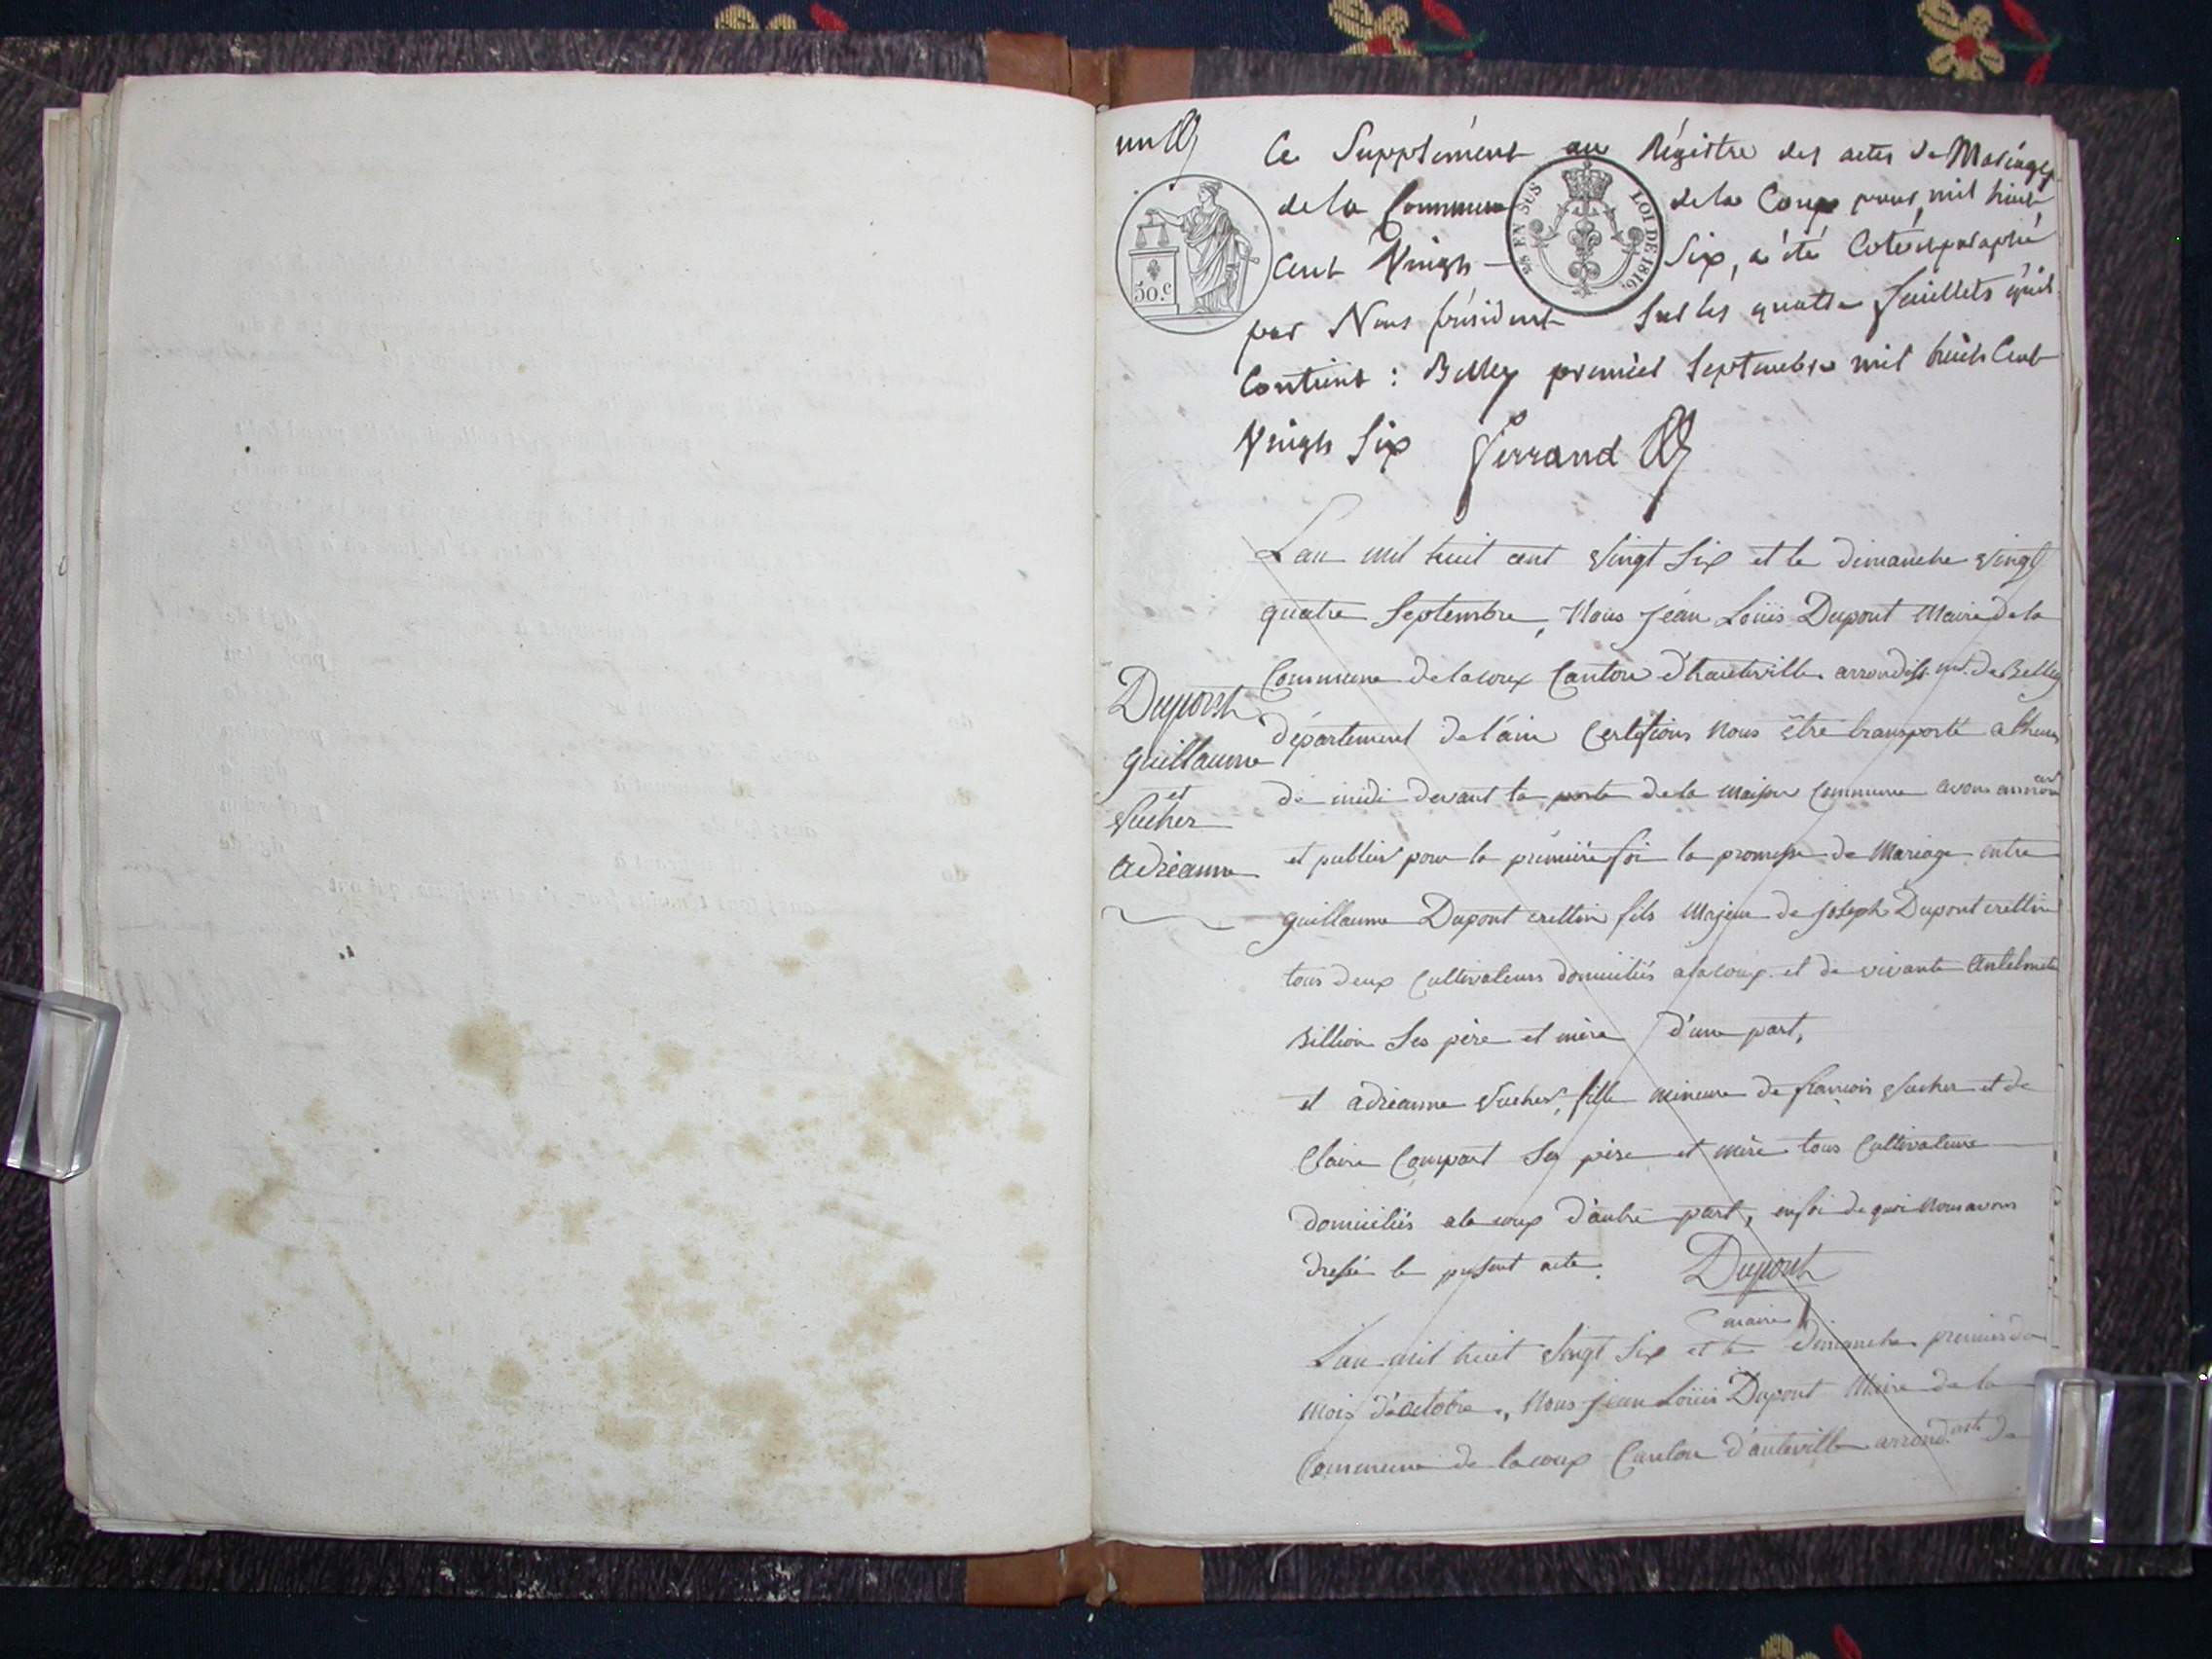 un
Ce Supplément au Régistre des actes de Mariages
de la Commune de la Coux pour mil huit
Cent Vingt Six, a été Coté et paraphé
par Nous président Sur les quatre feuillets qu'il
Contient : Belley premier Septembre mil huit Cent
Vingt Six
50.c
EN SUS
LOI DE 1816.
L'an mil huit cent vingt Six et le dimanche vingt
quatre Septembre, Nous Jean Loüis Dupont Maire de la
Commune de lacoux Canton d'hauteville arrondiss.mt de Belley
département de l'ain Certifions Nous être transporté a l'heure
de midi devant la porte de la maison Commune avons annoncer
et publier pour la première foi la promesse de Mariage entre
guillaume Dupont crettin fils Majeur de joseph Dupont crettin
tous deux Cultivateurs domiciliés a lacoux et de vivante Antelmette
Billion Ses père et mère d'une part,
et adrèanne Vucher, fille mineure de françois Vucher et de
Claire Compart Ses père et mère tous Cultivateurs
domiciliés a la coux d'autre part, en foi de quoi Nous avons
dressé le present acte. Dupont
maire
Dupont
guillaume
et
Vucher
adrèanne
L'an mil huit vingt Six et le dimanche premier du
Mois d'octobre, Nous jean Loüis Dupont Maire de la
Commune de lacoux Canton d'auteville arrond. de